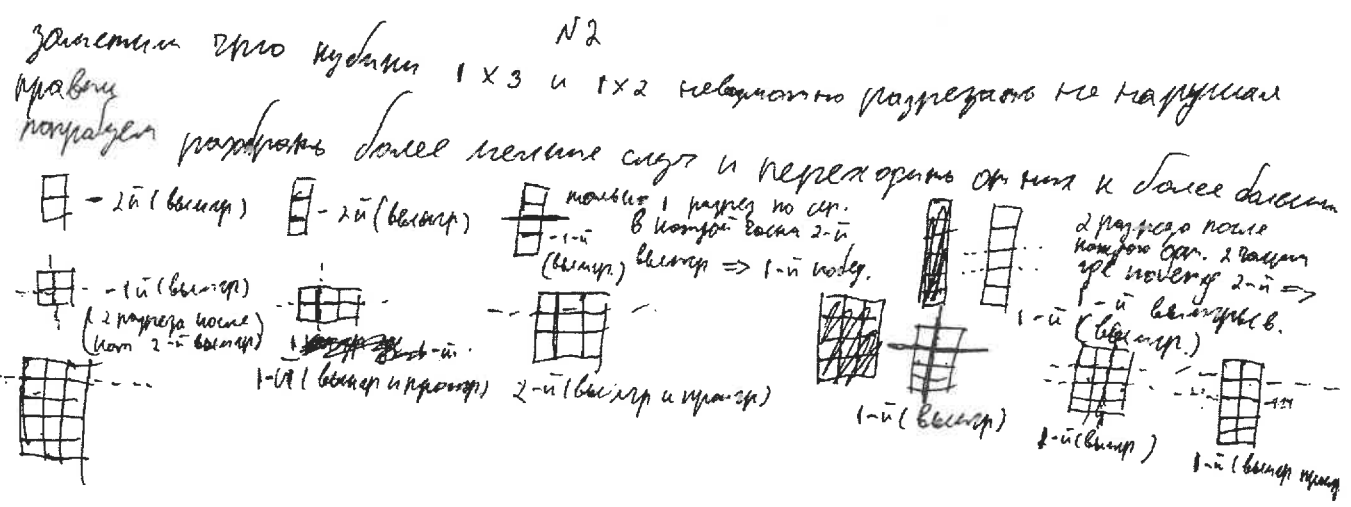 N2
Заметим что кубики 1 x 3 и 1x2 невозможно разрезать не нарушая
правил
попробуем разобрать более мелкие случ и переходить от них к более большим
- 2й (выигр)
- 2й (выигр)
только 1 разрез по сер.
в которой части 2-й
выигр => 1-й побед.
- 1-й
(выигр.)
2 разреза после
которого обр. 2 части
где победа 2-й =>
1-й выигрыв.
1-й (выигр.)
- 1й (выигр)
(2 разреза после
кот 2-й выигр)
1-й (выигр и проигр)
2-й (выигр и проигр)
1-й (выигр)
1-й (выигр)
1-й (выигр